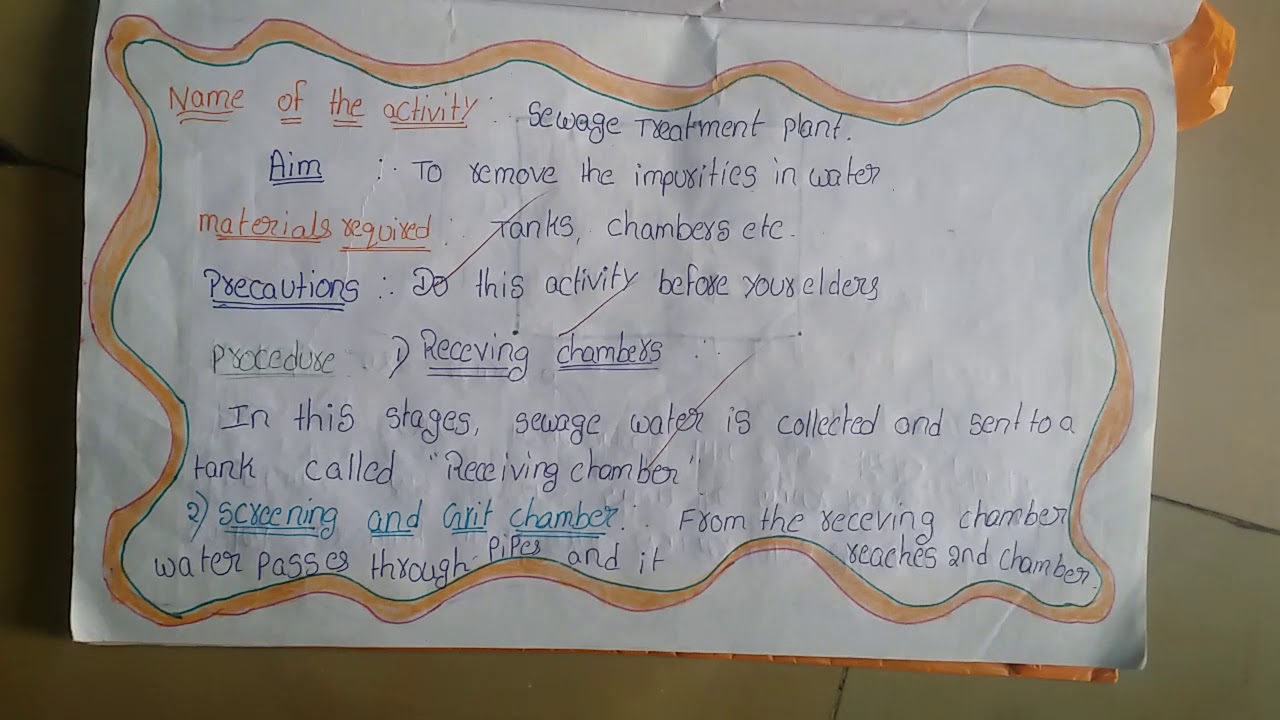 Name of the activity : Sewage Treatment plant.
Aim :- To remove the impurities in water.
materials required : Tanks, chambers etc.
Precautions :- Do this activity before your elders
Procedure :- 1) Receving chambers :-
In this stages, sewage water is collected and sent to a
tank called "Receiving chamber".
2) Screening and Grit chamber :- From the receving chamber
water passes through pipes and it reaches 2nd chamber.